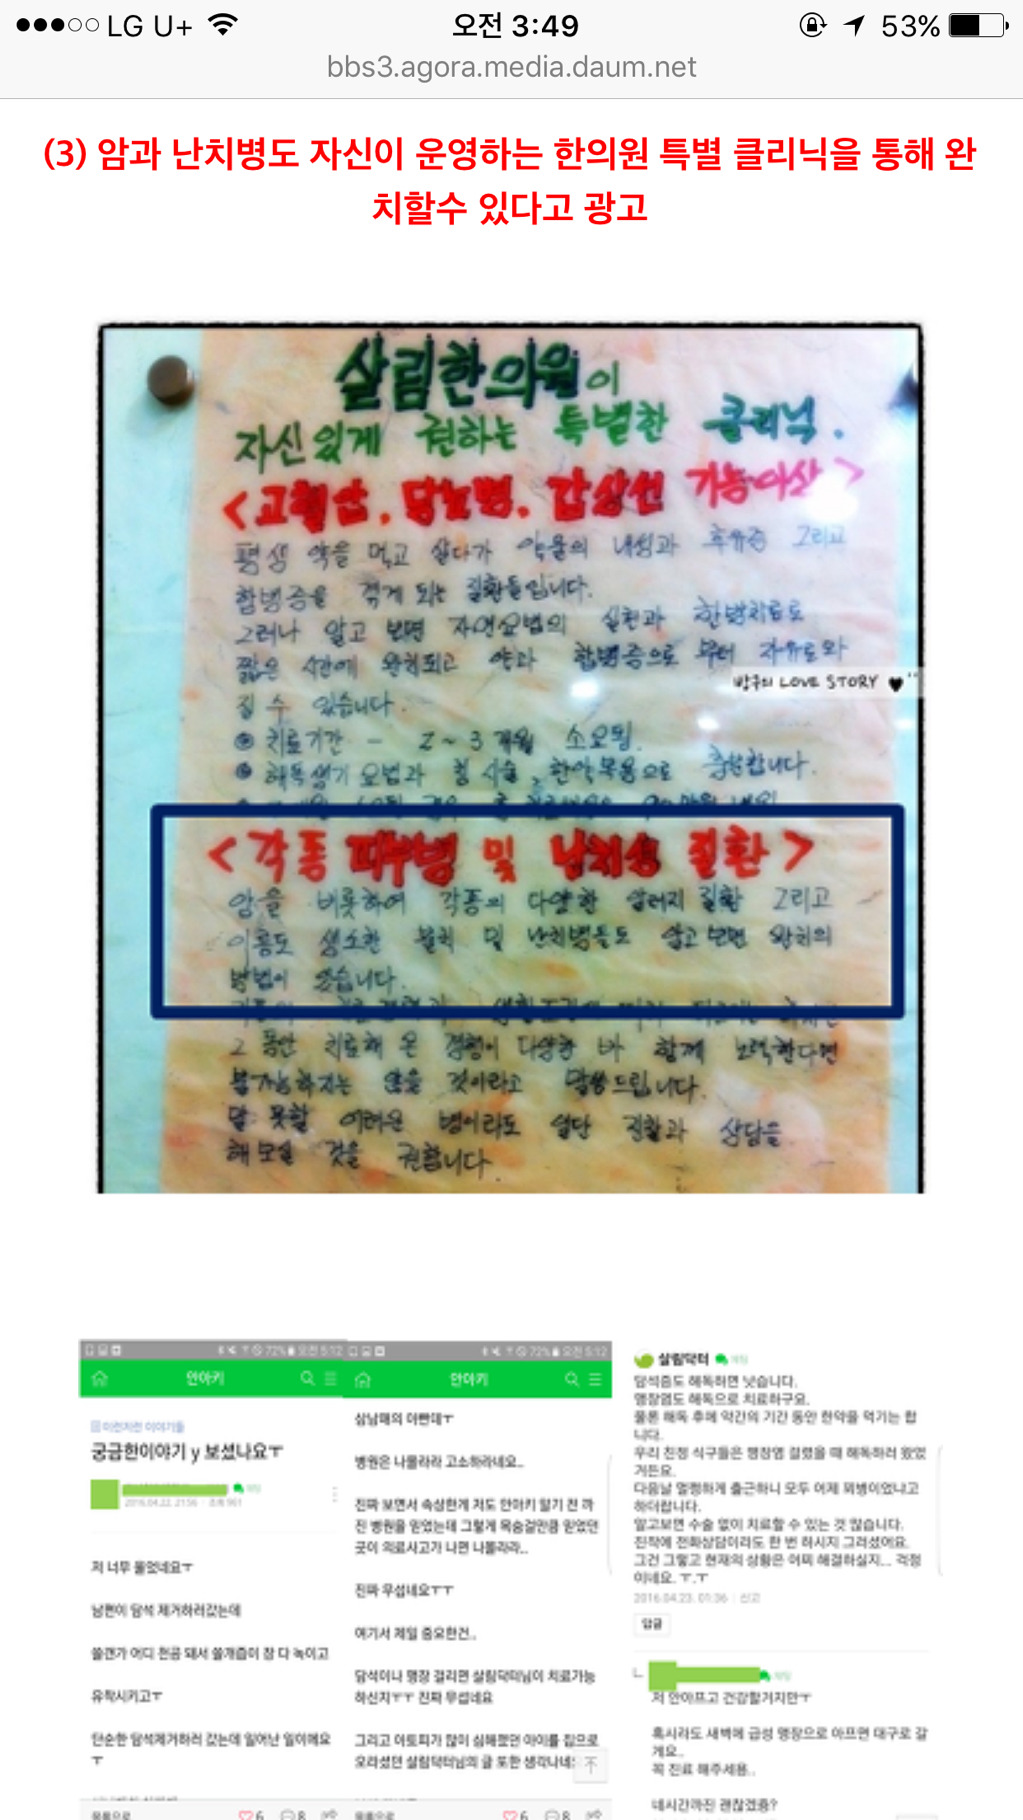 LG U+ 오전 3:49 53%
bbs3.agora.media.daum.net
(3) 암과 난치병도 자신이 운영하는 한의원 특별 클리닉을 통해 완
치할수 있다고 광고
살림한의원이
자신있게 권하는 특별한 클리닉.
<고혈압, 당뇨병, 갑상선 기능이상>
평생 약을 먹고 살다가 약물의 내성과 후유증 그리고
합병증을 겪게 되는 질환들입니다.
그러나 알고 보면 자연요법의 실천과 한방치료로
짧은 시간에 완치되고 약과 합병증으로 부터 자유로와
방구의 LOVE STORY ♥
질 수 있습니다.
치료기간 - 2~3개월 소요됨.
해독생기요법과 침 시술, 한약복용으로 충분합니다.
<각종 피부병 및 난치성 질환>
암을 비롯하여 각종의 다양한 알러지 질환 그리고
이름도 생소한 불치 및 난치병들도 알고보면 완치의
방법이 있습니다.
그 동안 치료해 온 경험이 다양한 바 함께 노력한다면
불가능하지는 않을 것이라고 말씀드립니다.
말 못할 어려운 병이라도 일단 진찰과 상담을
해보실 것을 권합니다.
72% 오전 5:12
안아키
이런저런 이야기들
궁금한이야기 y 보셨나요ㅜ
2016.04.22. 21:56 · 조회 901
저 너무 울었네요ㅜ
남편이 담석 제거하러갔는데
쓸갠가 어디 천공 돼서 쓸개즙이 장 다 녹이고
유착시키고ㅜ
단순한 담석제거하러 갔는데 일어난 일이에요
ㅜ
목록으로 6 8
72% 오전 5:12
안아키
삼남매의 아빤데ㅜ
병원은 나몰라라 고소하라네요..
진짜 보면서 속상한게 저도 안아키 알기 전 까
진 병원을 믿었는데 그렇게 목숨걸만큼 믿었던
곳이 의료사고가 나면 나몰라라..
진짜 무섭네요ㅜㅜ
여기서 제일 중요한건..
담석이나 맹장 걸리면 살림닥터님이 치료가능
하신지ㅜㅜ 진짜 무섭네요
그리고 아토피가 많이 심해했던 아이를 집으로
오라셨던 살림닥터님의 글 또한 생각나네요
목록으로 6 8
살림닥터 채팅
담석증도 해독하면 낫습니다.
맹장염도 해독으로 치료하구요.
물론 해독 후에 약간의 기간 동안 한약을 먹기는 합
니다.
우리 친정 식구들은 맹장염 걸렸을 때 해독하러 왔었
거든요.
다음날 멀쩡하게 출근하니 모두 어제 꾀병이었냐고
하더랍니다.
알고보면 수술 없이 치료할 수 있는 것 많습니다.
진작에 전화상담이라도 한 번 하시지 그러셨어요.
그건 그렇고 현재의 상황은 어찌 해결하실지... 걱정
이네요. ㅜ.ㅜ
2016.04.23. 01:36 | 신고
답글
채팅
저 안아프고 건강할거지만ㅜ
혹시라도 새벽에 급성 맹장으로 아프면 대구로 갈
게요..
꼭 진료 해주세용..
네시간까진 괜찮겠죵?